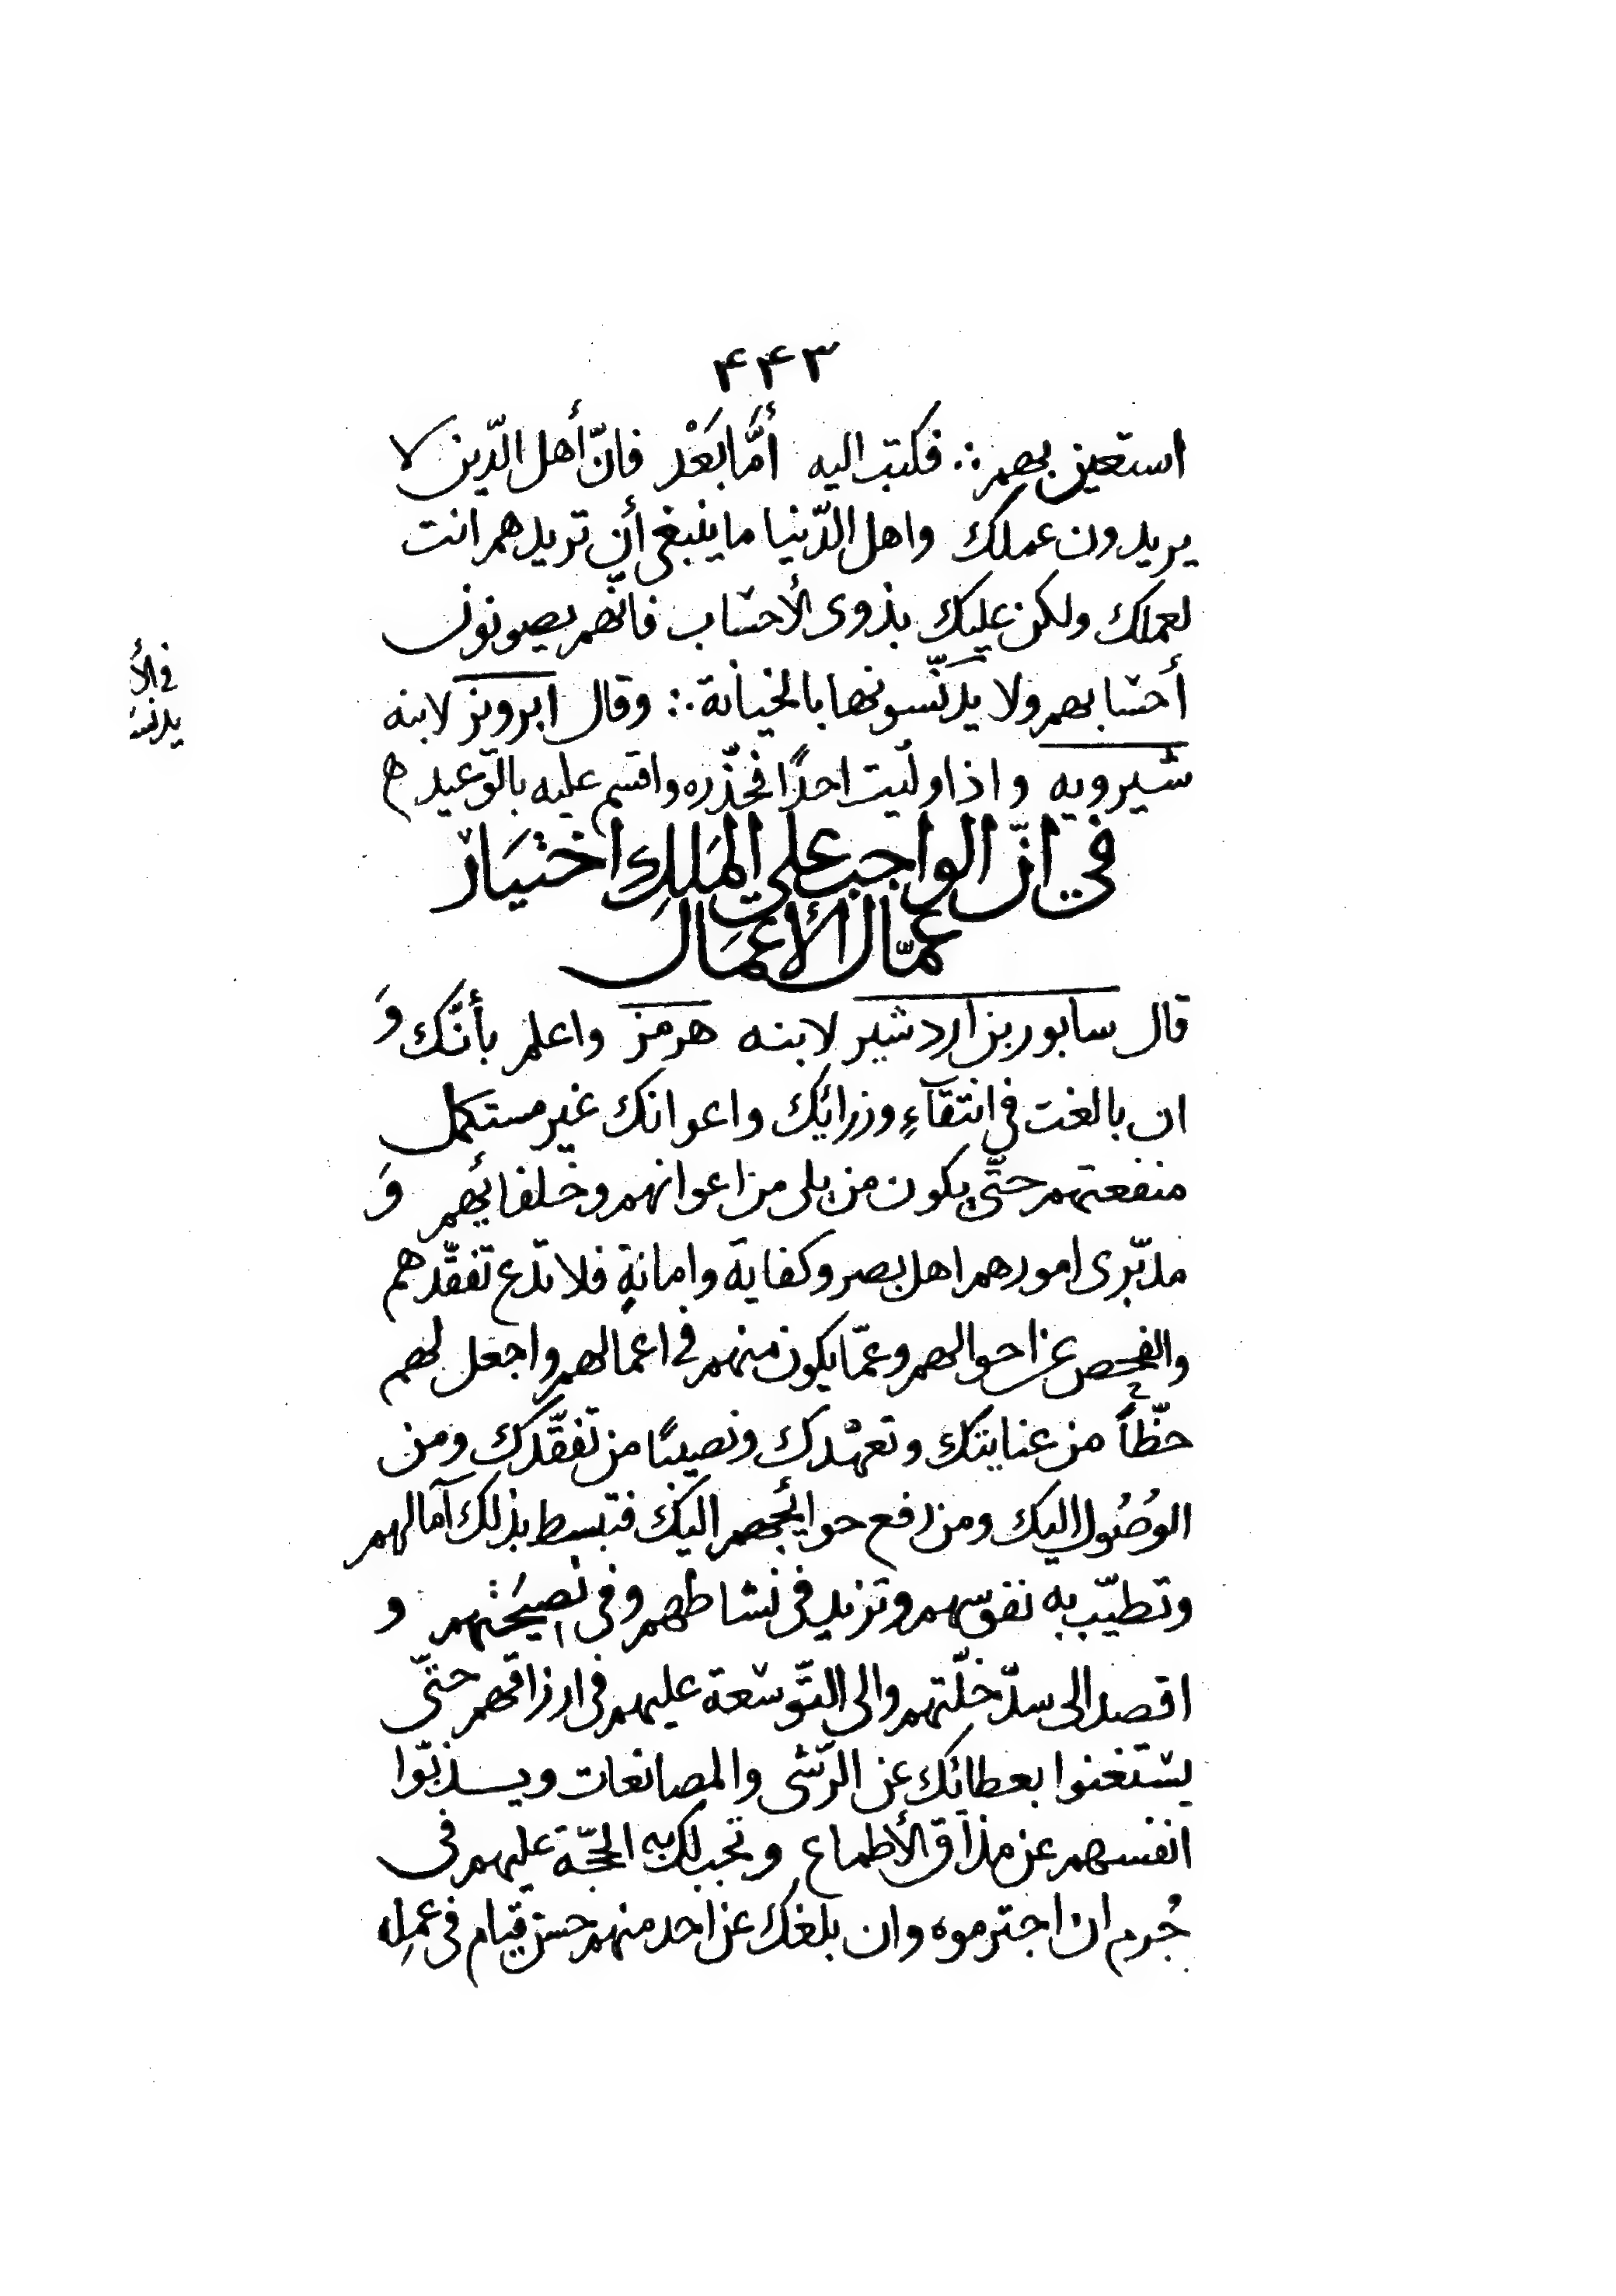 ۴۴۳
استعين بهم ∴ فكتب اليه أمَّا بَعْد فانّ أهل الدّين لا
يريدون عملك واهل الدّنيا ما ينبغى أن تريدهم انت
لعملك ولكن عليك بذوى الأحسَاب فانّهم يصونون
أحسابهم ولا يدنّسونها بالخيانة ∴ وقال ابرويز لابنه
شيرويه واذا ولّيت احدًا فحذّره واقسم عليه بالتّوعيد ه
في انّ الواجب على المَلِكِ اختيَار
عمّال الأعمَال
قال سابور بن اردشير لابنه هرمز واعلم بأنّك وَ
ان بالغت فى انتقآءِ وزرائك واعوانك غير مستكمل
منفعتهم حتّى يكون من يلى من اعوانهم وخلفائهم وَ
مدبّرى امورهم اهل بصر وكفاية وامانةٍ فلا تدع تفقّدهم
والفحص عن احوالهم وعمّا يكون منهم فى اعمالهم واجعل لهم
حظّاً من عنايتك وتعهّدك ونصيبًا من تفقّدك ومن
الوصُول اليك ومن رفع حوائجهم اليك فتبسط بذلك آمالهم
وتطيّب به نفوسهم وتزيد فى نشاطهم وفى نصيحَتهم و
اقصد الى سدّ خلّتهم والى التّوسّعة عليهم فى ارزاقهم حتّى
يستغنوا بعطائك عن الرّشى والمصانعات و
انفسهم عن مذاق الأطماع وتجب لك به الحجّة عليهم فى
جُرم ان اجترموه وان بلغك عن احد منهم حسن قيام فى عملِه
فى الأ